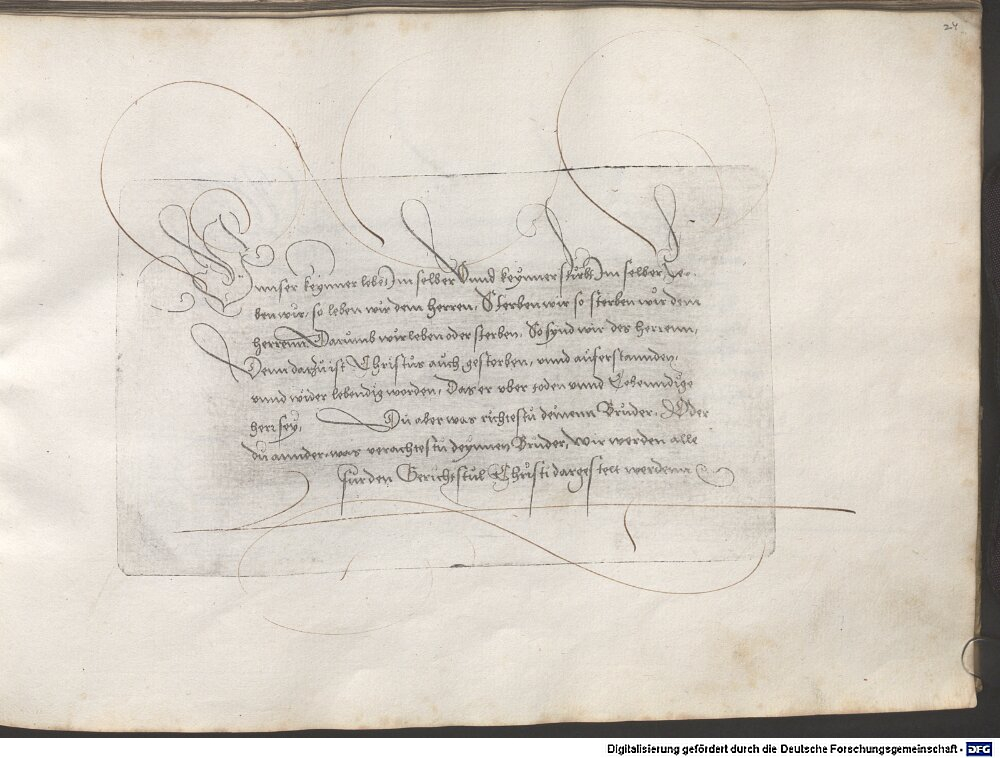 24
unser keynner lebt Im selber Vnnd keynner stürbt Im selber Le-
ben wir, so leben wir dem herren, Sterben wir so sterben wir dem
herrenn Darumb wir leben oder sterben, So synd wir des herrenn,
Denn darzu ist Christus auch gestorben, vnnd aufferstannden,
vnnd wider lebendig worden, Das er vber toden vnnd Lebenndige
herr sey, Du aber was richtestu deinenn Brüder, Oder
du annder, was verachtestu deynnen Brüder, Wir werden alle
für den Gerichtstul Christi dargestelt werdenn
Digitalisierung gefördert durch die Deutsche Forschungsgemeinschaft - DFG